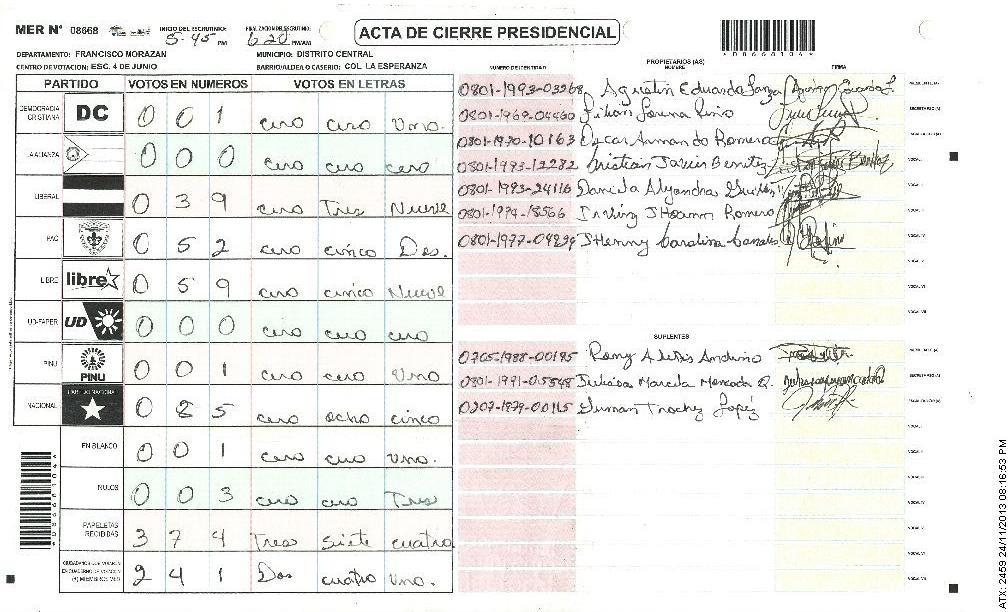 MER Nº 08668 INICIO DEL ESCRUTINIO: 5-45 PM FINALIZACION DEL ESCRUTINIO: 6 20 PM/AM
ACTA DE CIERRE PRESIDENCIAL
*08668104*
DEPARTAMENTO: FRANCISCO MORAZAN MUNICIPIO: DISTRITO CENTRAL
CENTRO DE VOTACION: ESC. 4 DE JUNIO BARRIO/ALDEA O CASERIO: COL LA ESPERANZA
PARTIDO VOTOS EN NUMEROS VOTOS EN LETRAS
DEMOCRACIA CRISTIANA DC 0 0 1 cero cero Uno.
LA ALIANZA 0 0 0 cero cero cero
LIBERAL 0 3 9 cero Tres Nueve
PAC 0 5 2 cero cinco Dos.
LIBRE libre 0 5 9 cero cinco Nueve
UD-FAPER UD 0 0 0 cero cero cero
PINU PINU 0 0 1 cero cero Uno
NACIONAL PARTIDO NACIONAL 0 8 5 cero ocho cinco
EN BLANCO 0 0 1 cero cero Uno.
NULOS 0 0 3 cero cero Tres
PAPELETAS RECIBIDAS 3 7 4 Tres Siete cuatro
CIUDADANOS QUE VOTARON EN CUADERNO DE VOTACION (+) MIEMBROS MER 2 4 1 Dos cuatro Uno.
NUMERO DE IDENTIDAD PROPIETARIOS (AS) NOMBRE FIRMA
0801-1993-03268 Agustin Eduardo
0801-1969-04460
0801-1970-10163 Oscar Armando Romero
0801-1993-12282 Cristian Javier Benitez
0801-1993-24116 Daniela Alejandra
0801-1974-18566 Irving Romero
0801-1977-04299 Carolina Canales
SUPLENTES
0705-1988-00195 Rony Alexis Andino
0801-1991-05548 Marcela Moncada
0207-1979-00115 Trochez Lopez
ATX: 2459 24/11/2013 08:16:53 PM